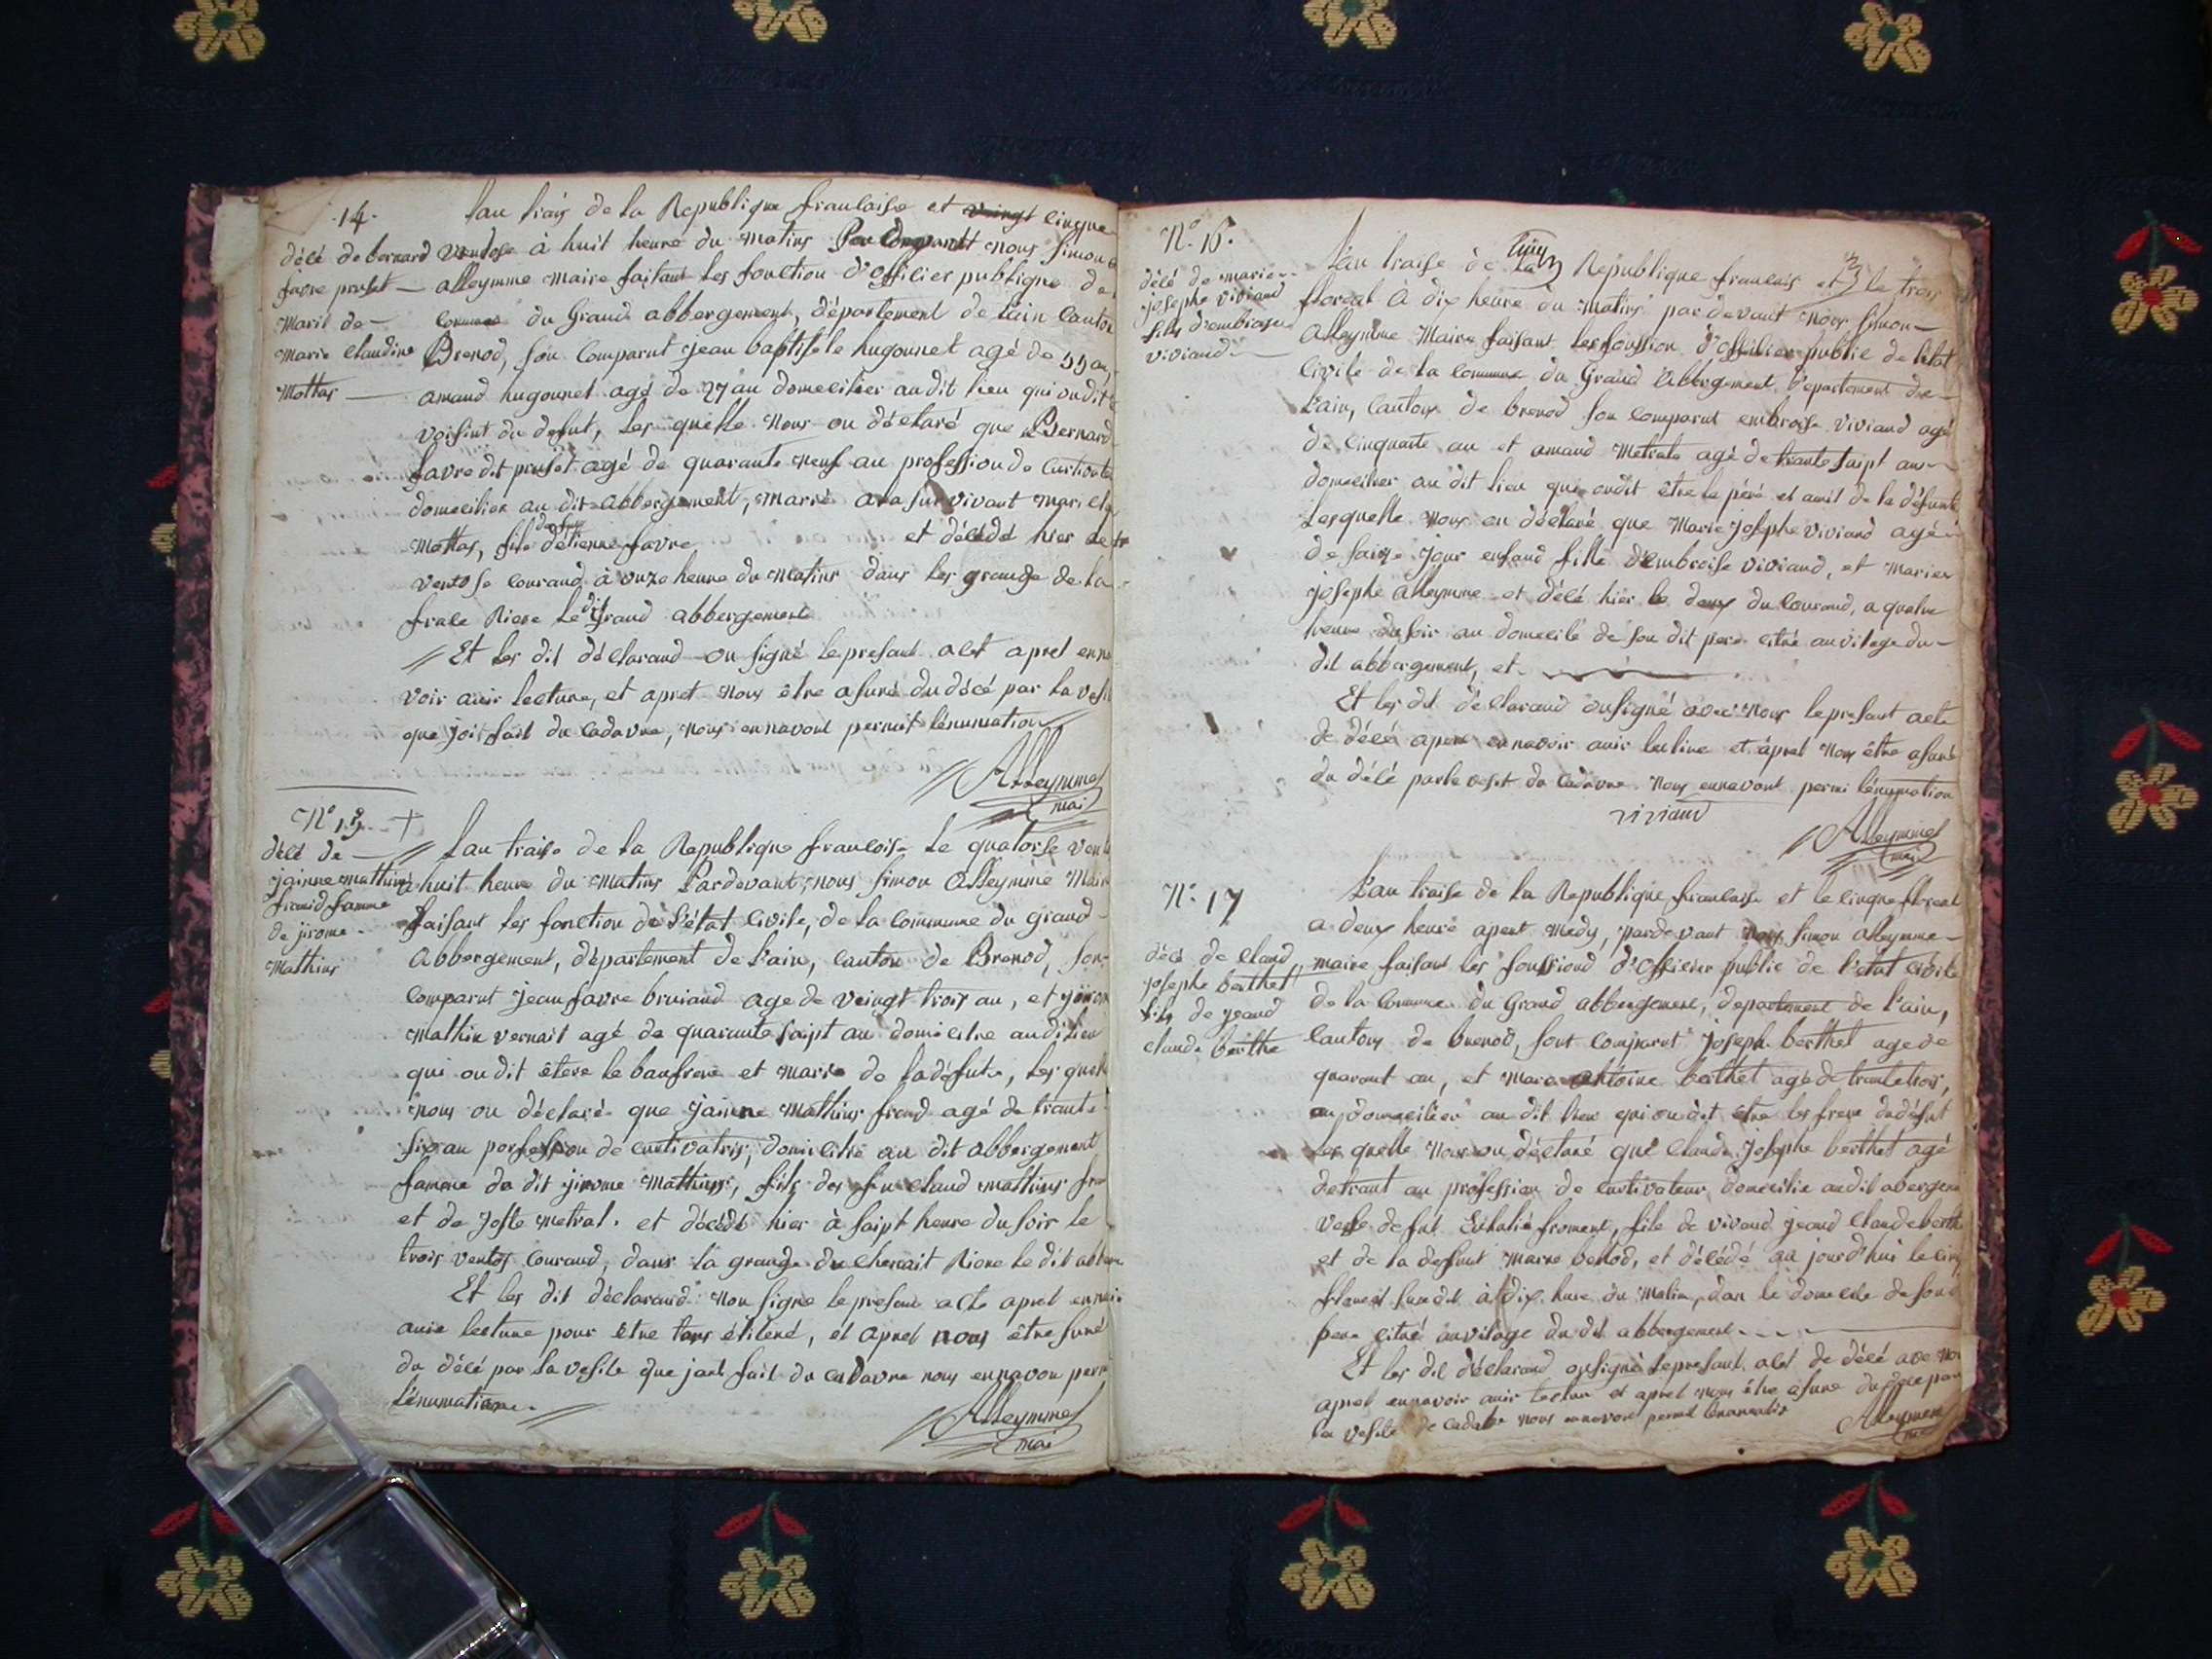 14.
délé de bernard
favre prufet
Maril de
Marie Claudine
Mottas
lan traiz de la Republique francaise et veingt cinque
ventose à huit heure du matins Par devant nous Simon
alleymme maire faisant les fonction d'offilier publique de
commune du Grand abbergement, département de lain canton
Brenod, son comparut jean baptiste hugonnet agé de 55 an,
amand hugonnet agé de 27 an domecilier au dit lieu qui on dit
voisint du defut, les quelle nous on déclaré que Bernard
favre dit prufet agé de quarante neuf au profession de
domecilier au dit abbergement, marié a la survivant mari
Mottas, fils de feu detienne favre et décédé hier
ventose courand à onze heure du matins dans les grange de la
Riere le dit Grand abbergement
Et les dit déclarand on signé le presant alt apret
voir auir lecture, et apret nous être asuré du décé par la
que jai fait du cadavre, nous ennavont permit lénumation
Alleymme
mai
N° 15. +
délé de
jainne mathins
famme
de jirome
Mathins
Lan traise de la Republique francoise Le quatorse
à huit heure du matins Pardevant nous simon Alleymme Maire
faisant les fonction de l'état civile, de la commune du grand
Abbergement, département de l'ain, canton de Brenod, son
comparut jean favre bruiand age de veingt trois au, et
mathin vernait agé de quarante saipt au domicilre au dit lieu
qui on dit êtere le baufrere et marie de la défute, les
nous on déclaré que jainne mathins agé de trante
six au porfession de cultivatris, domicilié au dit abbergement
famme du dit jirome mathins, fils des feu claud mathins
et de Metral. et décédé hier à saipt heure du soir le
trois ventos courand, dans la grange Riere le dit
Et les dit déclarand non signe le presant acte apret
auir lecture pour être étileré, et apret nous être
du délé par la vesite que jait fait du cadavre nous ennavon
Lénumation.
Alleymme
mai
N° 16.
délé de marie
josephe viviand
fille d'embroise
viviand
Lan traise de la Republique francais et le trois
floreal à dix heure du matins par devant nous simon
Alleymme Maire faisant les foussion d'offilier public de létat
civile de la commune du Grand Abbergement departement de
L'ain, canton de brenod son comparut embroise viviand agé
de cinquante au et amand Metrale agé de trante saipt an
domecilier au dit lieu qui ondit être le péré et amil de la défunte
Lesquelle nous on déclaré que Marie josephe viviand agé
de saize jour enfand fille d'Embroise viviand, et Marie
josephe Alleymme et délé hier le deux du courand, a quatre
heure du soir au domecile de son dit pere citué au vilage du
dit abbergement, et
Et les dit déclarand onsigné avec nous le presant acte
de délé apere ennavoir auir lecture et apret nous être asuré
du délé par la vesit du cadavre nous ennavont permi lénumation
viviand
Alleymme
mai
N° 17
déce de claud
josephe berthet
fils de jeand
claude berthe
L'an traise de la Republique francaise et le cinque floreal
a deux heure apret medy, pardevant nous Simon alleymme
maire faisant les foussiond d'Officier public de l'etat civile
de la commune du Grand abbergement, departement de l'ain,
canton de brenod, sont comparut joseph berthet age de
quarant an, et Marc antoine berthet agé de trantetrois,
an domecilier au dit lieu qui on dit etre les frere du défut
Les quelle nous on déclaré que Claude josephe berthet agé
detrant au profession de cultivateur domecilie audit
vefe de fut froment, fils de vivand jeand claude
et de la defunt Marie et décédé au jourd'hui le
floreal susdit à dix hure du Matin, dan le domecile de sond
pere citué au vilage du dit abbergement
Et les dit déclarand onsigné le presant alt de délé ave
apret ennavoir auir lectur et apret nous être asure du déce par
la vesite de cadavre nous ennavont permit
Alleymme
mai